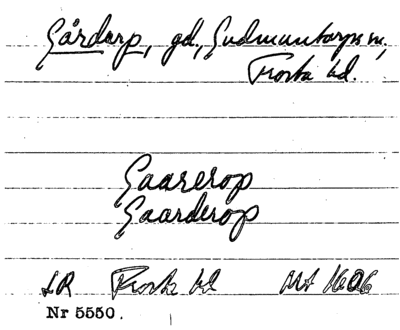 Gårdarp, gd., Gudmuntorps sn,
Frosta hd.
Gaarerop
Gaarderop
LR Frosta hd 1606
Nr 5550.